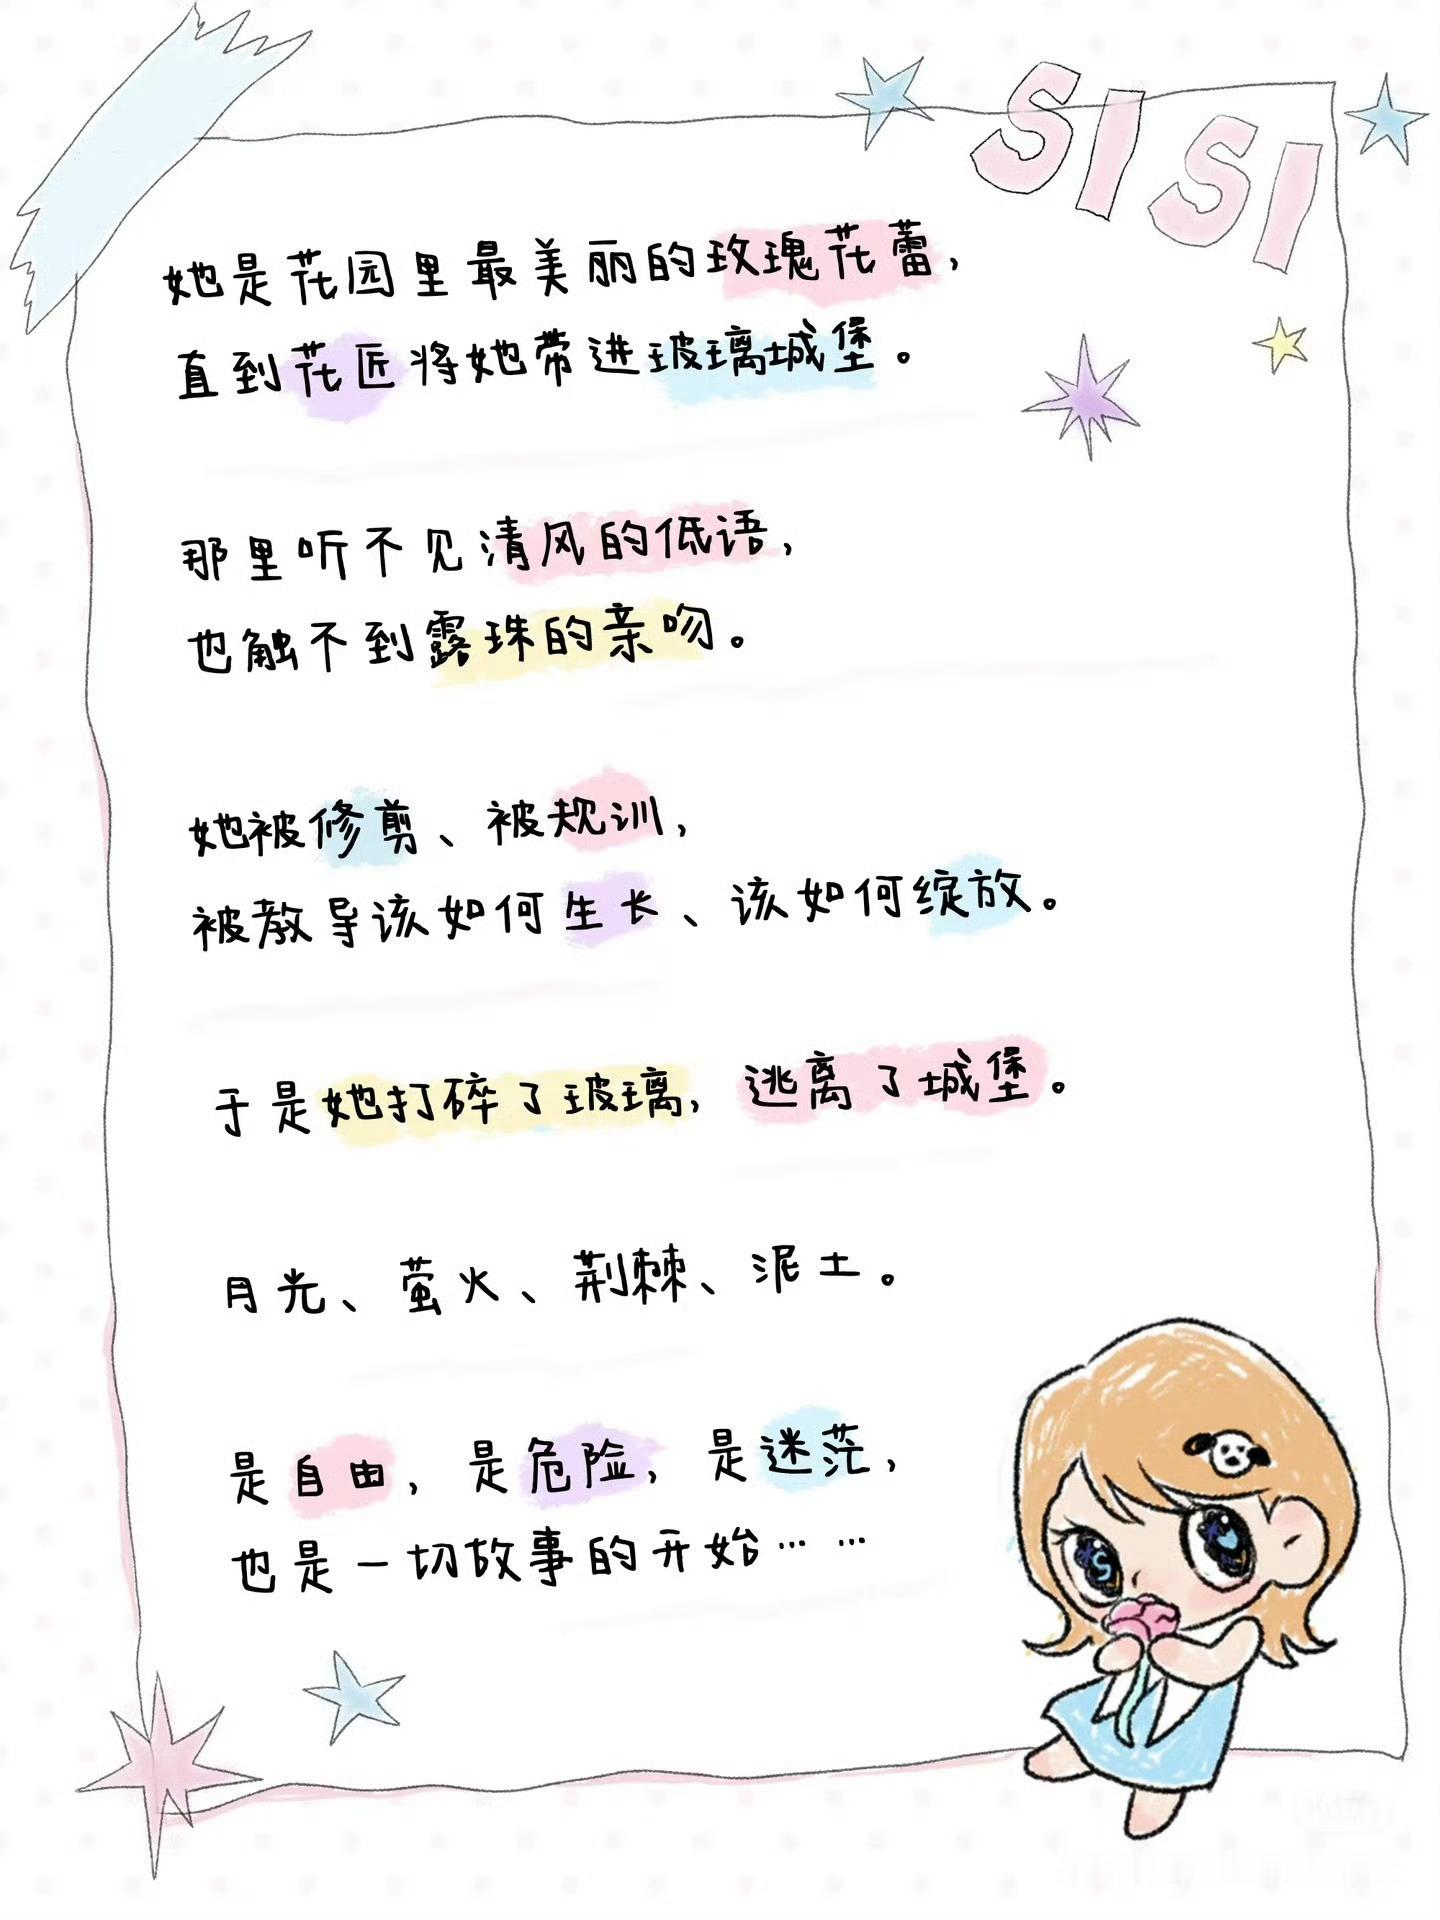 SISI
她是花园里最美丽的玫瑰花蕾，
直到花匠将她带进玻璃城堡。
那里听不见清风的低语，
也触不到露珠的亲吻。
她被修剪、被规训，
被教导该如何生长、该如何绽放。
于是她打碎了玻璃，逃离了城堡。
月光、萤火、荆棘、泥土。
是自由，是危险，是迷茫，
也是一切故事的开始……